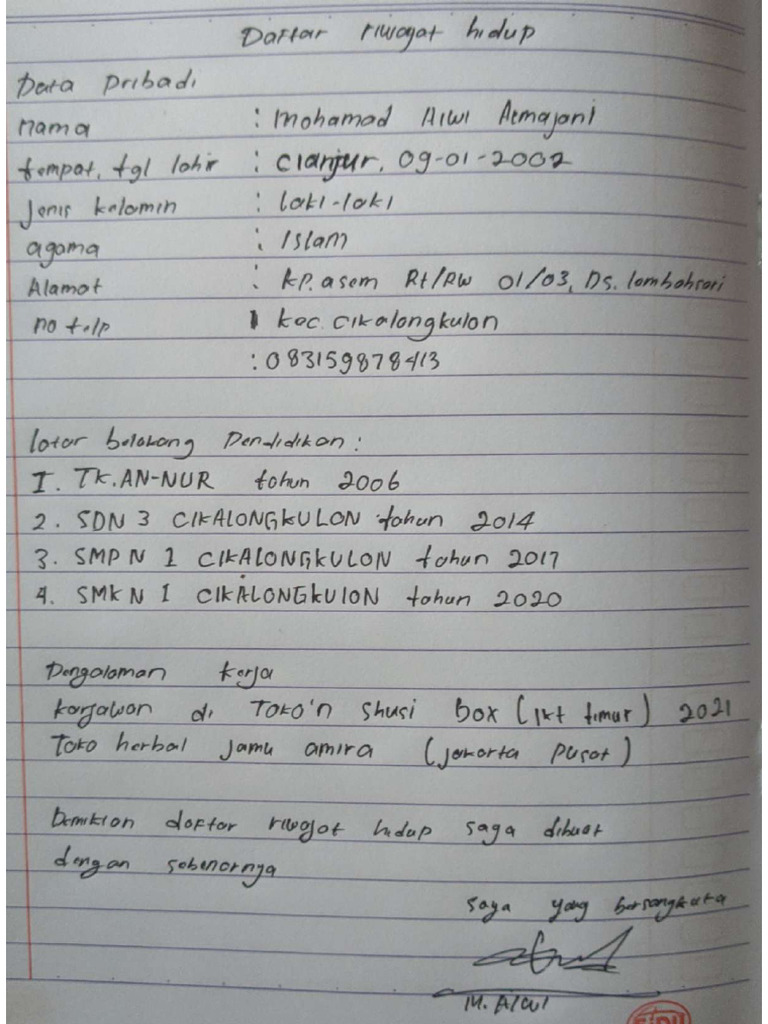 Daftar riwayat hidup
Data pribadi
nama : Mohamad Alwi Armajani
tempat, tgl lahir : Cianjur, 09-01-2002
Jenis kelamin : laki-laki
agama : Islam
Alamat : kp. asem Rt/RW 01/03, Ds. lembahsari
no telp kec. cikalongkulon
: 083159878413
latar belakang Pendidikan :
I. TK. AN-NUR tahun 2006
2. SDN 3 CIKALONGKULON tahun 2014
3. SMP N 1 CIKALONGKULON tahun 2017
4. SMK N 1 CIKALONGKULON tahun 2020
Pengalaman kerja
karyawan di TOKO'n shusi box (jkt timur) 2021
Toko herbal jamu amira (jakarta pusat)
Demikian daftar riwayat hidup saya dibuat
dengan sebenarnya
saya yang bersangkuta
M. Alwi
SiDU